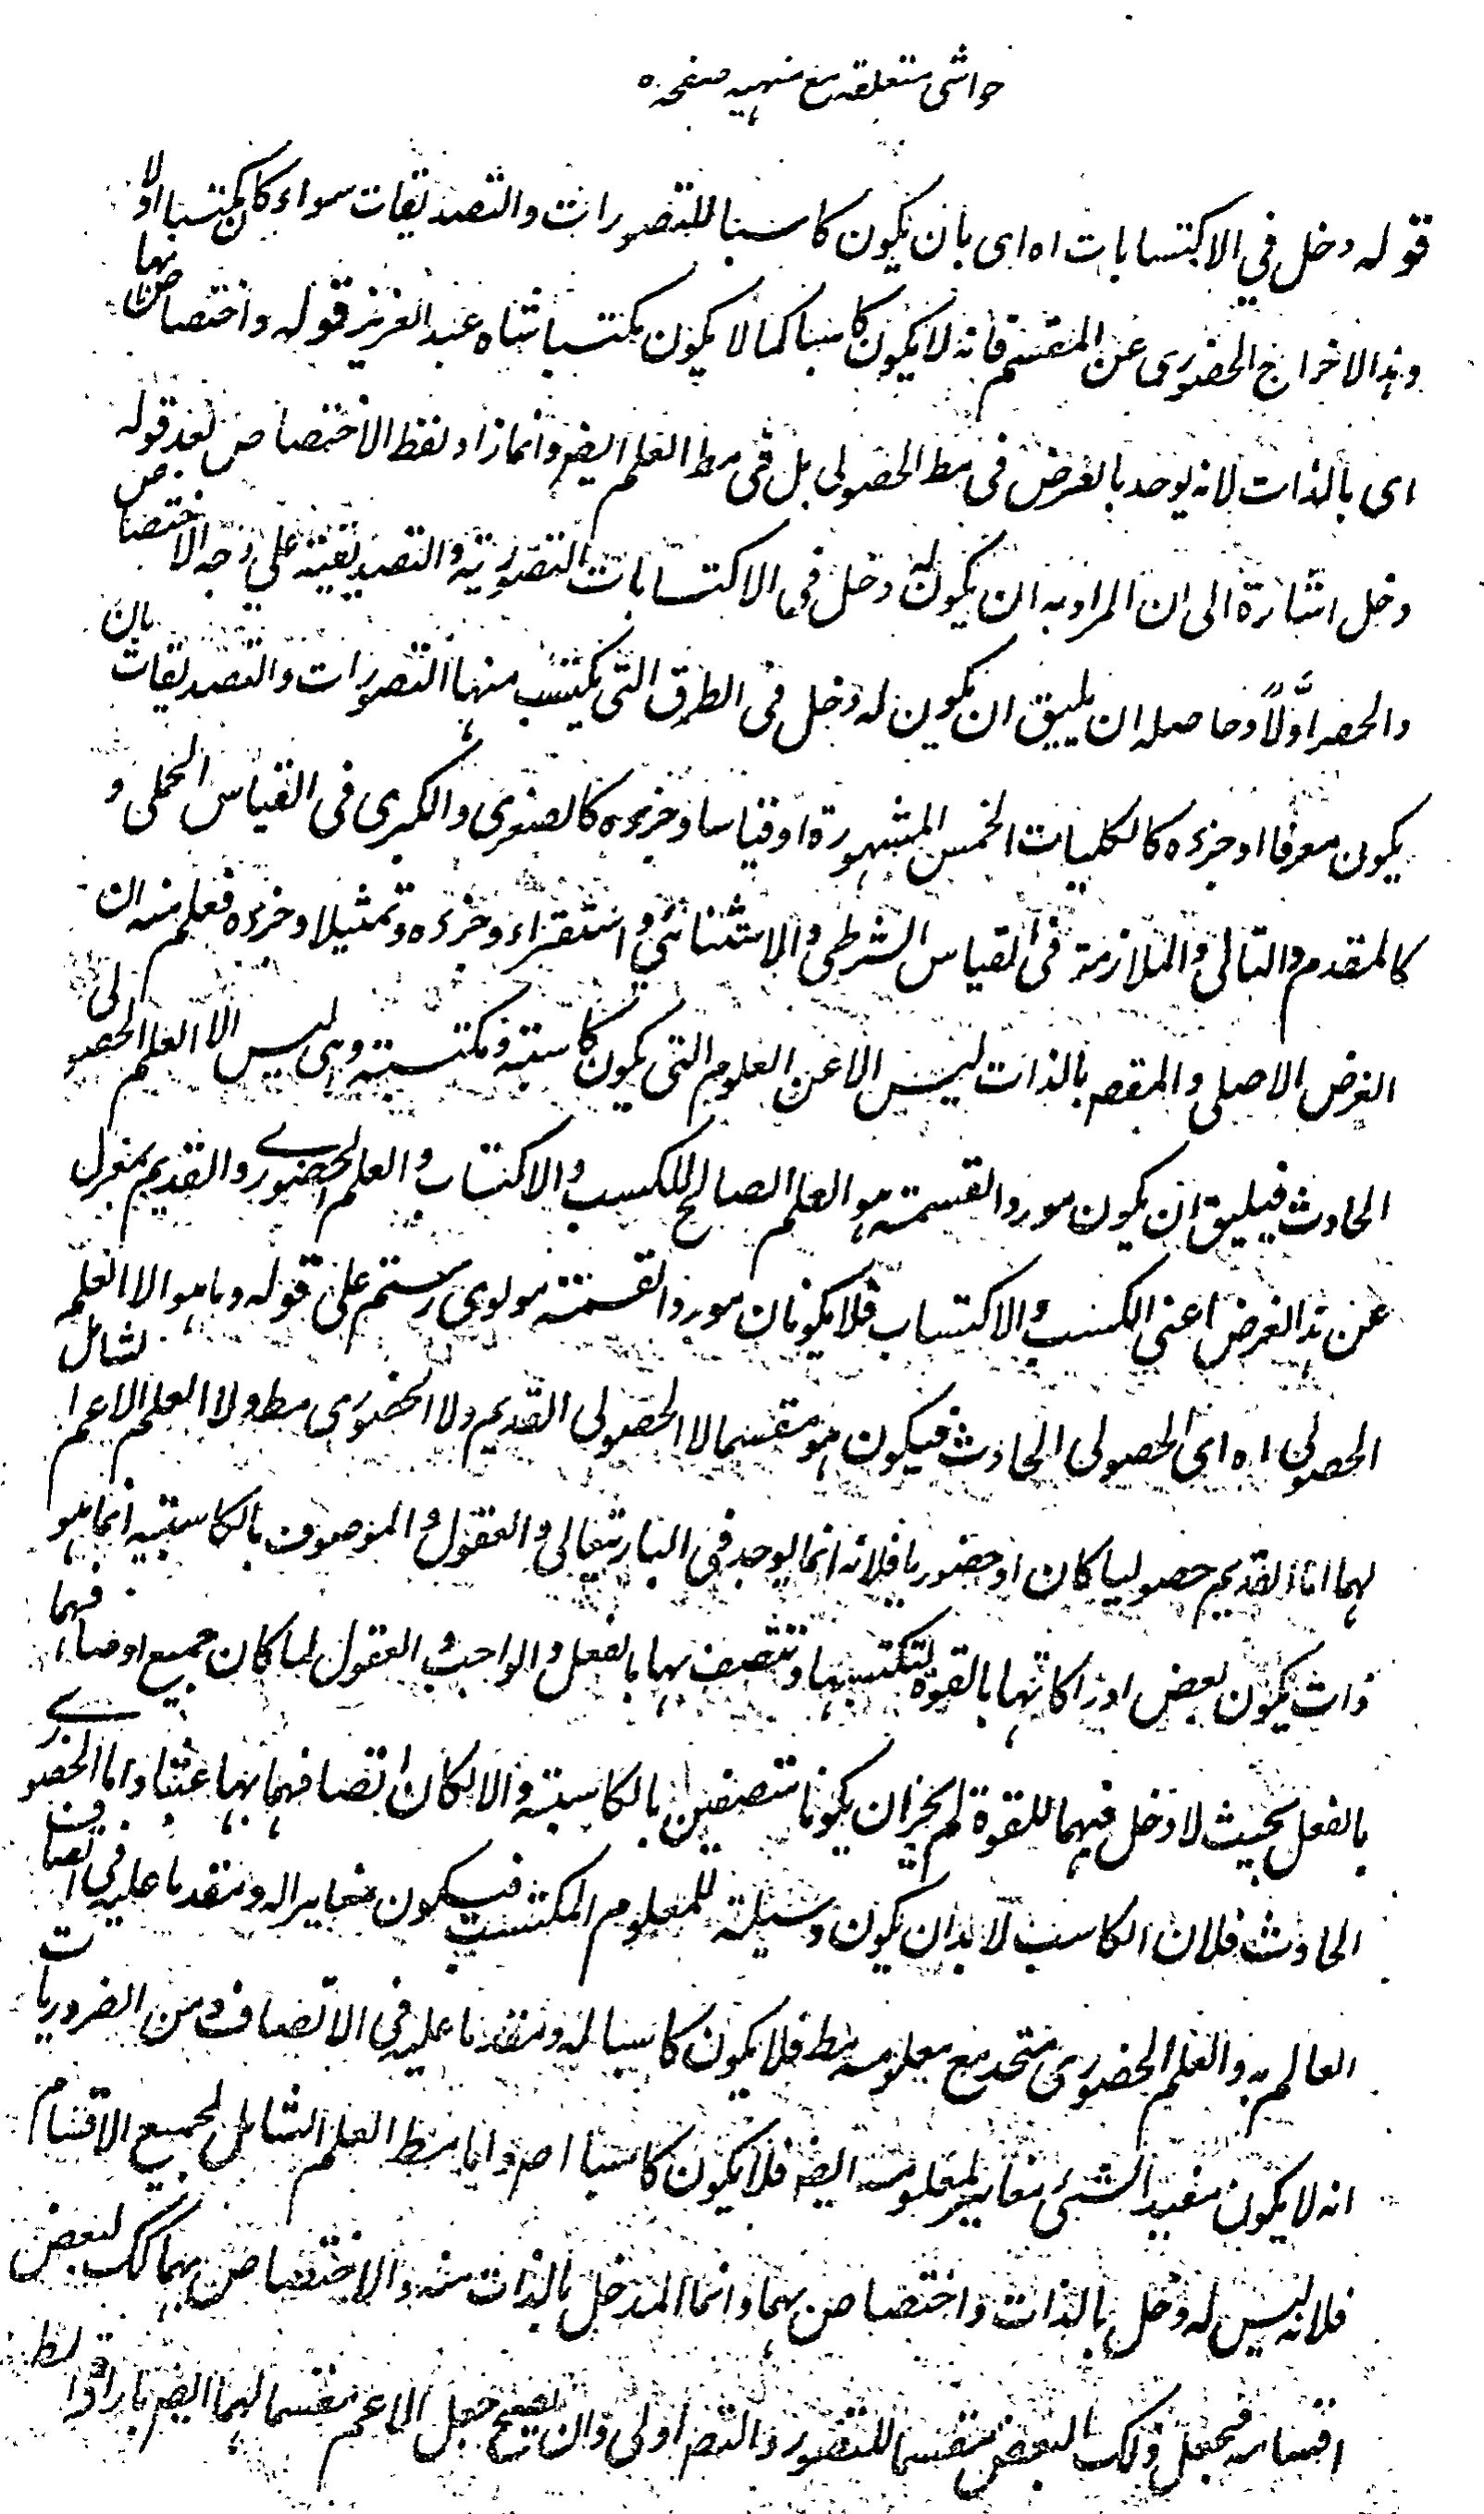 حواشی متعلقہ مع منہیہ صفحہ ٥
قولہ دخل فی الاکتسابات اہ ای بان یکون کاسبا للتصورات والتصدیقات سواء کان مکتسبا اولا
وہذا لاخراج الحضوری عن المقسم فانہ لا یکون کاسبا کما لا یکون مکتسبا شاہ عبد العزیز قولہ واختصاص بہا
ای بالذات لانہ یوجد بالعرض فی مط الحصولی بل فی مط العلم ایضہ وانما زاد لفظ الاختصاص بعد قولہ
دخل اشارۃ الی ان المراد بہ ان یکون لہ دخل فی الاکتسابات التصوریۃ والتصدیقیۃ علی وجہ الاختصاص
والحصر اوّلًا وحاصلہ ان یلیق ان یکون لہ دخل فی الطرق التی یکتسب منہا التصورات والتصدیقات بان
یکون معرفا او جزءہ کالکلیات الخمس المشہورۃ او قیاسا وجزءہ کالصغری والکبری فی القیاس الحملی و
کالمقدم والتالی والملازمۃ فی القیاس الشرطی والاستثنائی و استقراء وجزءہ وتمثیلا وجزءہ فعلم منہ ان
الغرض الاصلی والمقصہ بالذات لیس الا عن العلوم التی یکون کاسبۃ ومکتسبۃ وہی لیس الا العلم الحصولی
الحادث فیلیق ان یکون مورد القسمۃ ہو العلم الصالح للکسب والاکتساب والعلم الحضوری والقدیم بمعزل
عن ہذا الغرض اعنی الکسب والاکتساب فلا یکونان مورد القسمۃ مولوی رستم علی قولہ وما ہو الا العلم
الحصولی اہ ای الحصولی الحادث فیکون ہو مقسما لا الحصولی القدیم ولا الحضوری مط ولا العلم الاعم الشامل
لہما اما القدیم حصولیا کان او حضوریا فلانہ انما یوجد فی الباری تعالی والعقول والموصوف بالکاسبیۃ انما ہو
ذات یکون بعض ادراکاتہا بالقوۃ لتکتسبہا وتتصف بہا بالفعل والواجب والعقول لما کان جمیع اوصافہما
بالفعل بحیث لا دخل فیہما للقوۃ لم یجز ان یکونا متصفین بالکاسبۃ والا لکان اتصافہما بہا عبثا واما الحضوری
الحادث فلان الکاسب لا بد ان یکون وسیلۃ للمعلوم المکتسب فیکون مغایرا لہ ومتقدما علیہ فی اتصاف
العالم بہ والعلم الحضوری متحد مع معلومہ مط فلا یکون کاسبا لہ ومتقدما علیہ فی الاتصاف ومن الضروریات
انہ لا یکون مفید الشیء مغایر لمعلومہ ایضہ فلا یکون کاسبا اصہ واما مط العلم الشامل لجمیع الاقسام
فلانہ لیس لہ دخل بالذات واختصاص بہما وانما المدخل بالذات منہ والاختصاص بہما کک لبعض
اقسامہ فجعل ذلک البعض مقسما للتصور والتصہ اولی وان یصح جعل الاعم مقسما لہما ایضہ بارادۃ